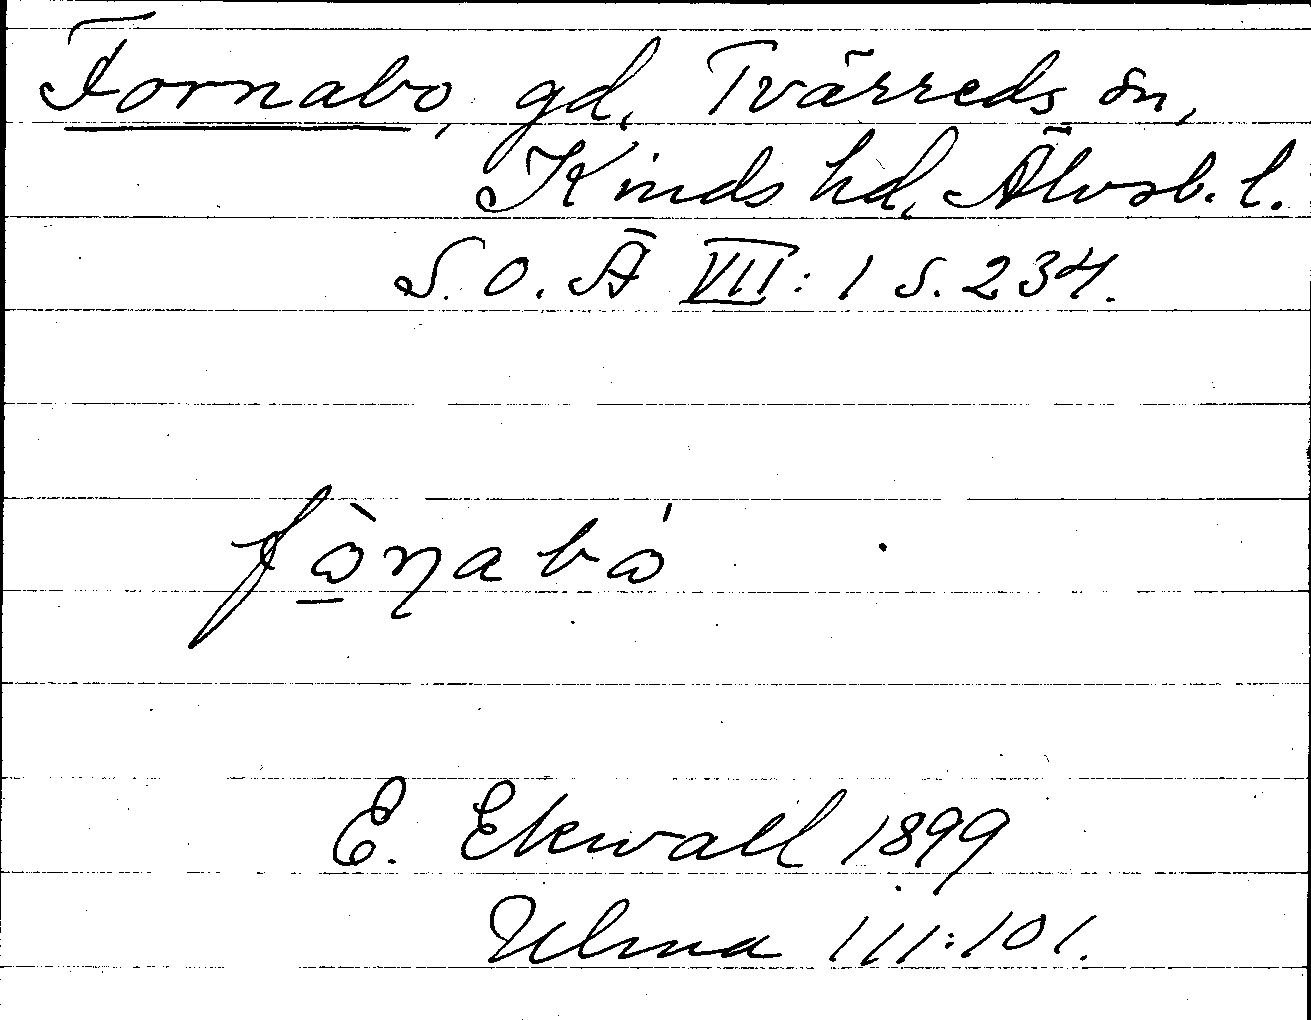 Fornabo, gd, Tvärreds sn,
Kinds hd, Älvsb. l.
S. O. Ä VII: 1 s. 234.
fὼ̱ɳabώ
E. Ekwall 1899
Ulma 111:101.